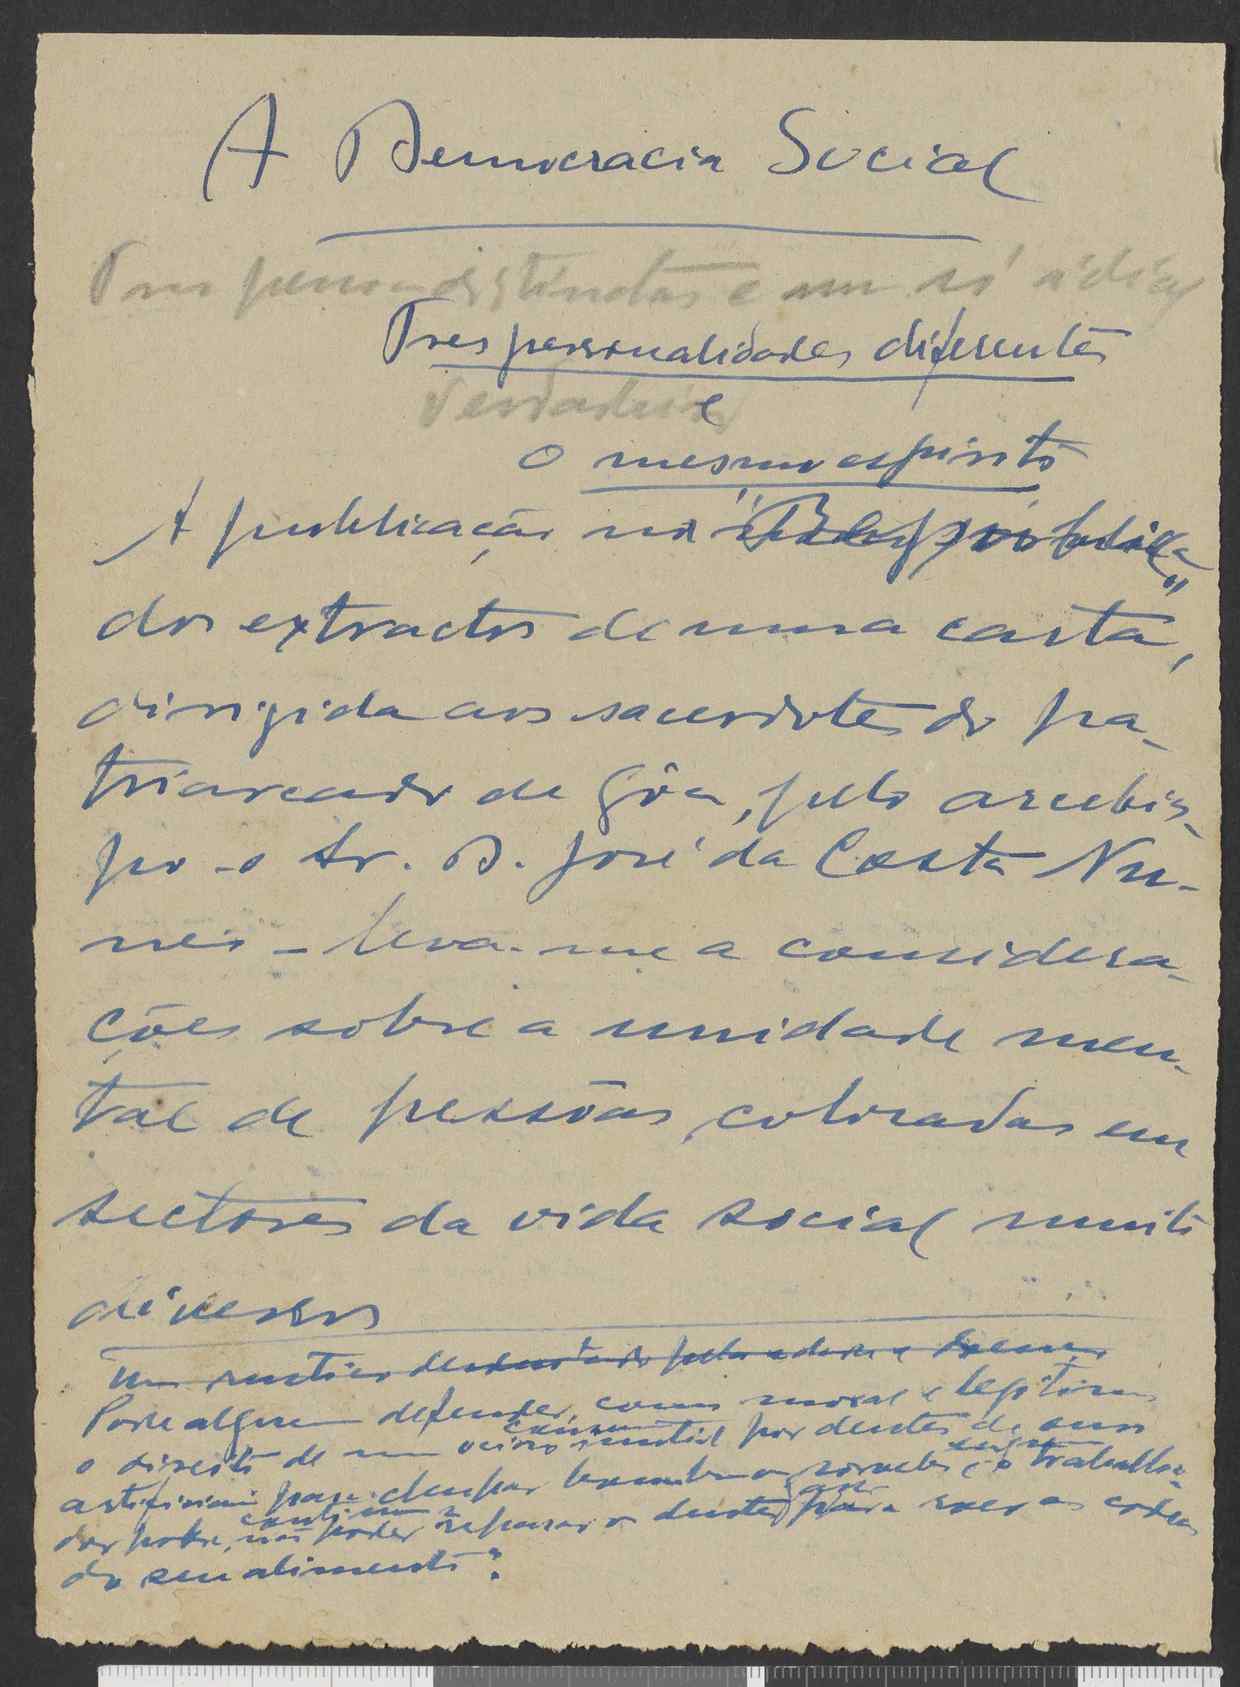 A Democracia Social
Tres pessoas distintas e um só
Tres personalidades diferentes
Verdadeiro
e
o mesmo espirito
A publicação na "Republica"
dos extractos de uma carta,
dirigida aos sacerdotes do pa-
triarcado de Gôa, pelo arcebis-
po - o Sr. D. José da Costa Nu-
nes - leva-me a considera-
ções sobre a unidade men-
tal de pessôas, colocadas em
sectores da vida social muito
diversos
Um rustico pela
Pode alguem defender, como moral e legitimo
o direito de um ocioso inutil por dentes de ouro
artificiais para e o trabalha-
dor pobre, não poder reparar os dentes para roer as codeas
do seu alimento?